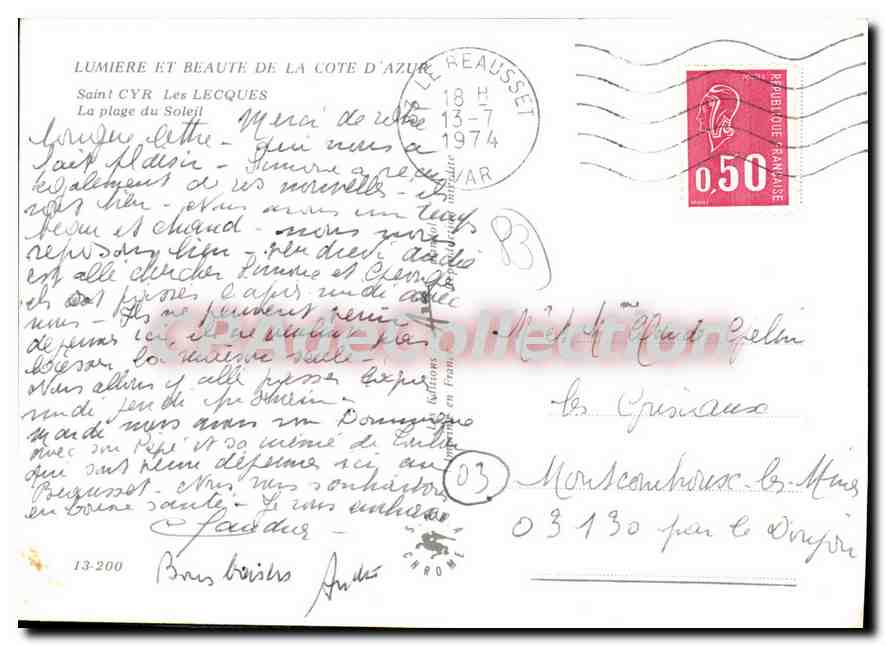 LUMIERE ET BEAUTE DE LA COTE D'AZUR
Saint CYR Les LECQUES
La plage du Soleil
LE BEAUSSET
18 H
13-7
1974
VAR
POSTES
REPUBLIQUE FRANÇAISE
0,50
83
longue lettre - Merci de votre
fait plaisir - qui nous a
Simone a reçu
également de vos nouvelles - ils
vont bien - Nous avons un temps
beau et chaud - nous nous
reposons bien - vendredi André
est allé chercher Simone et Georges
ils ont passés l'après midi avec
nous - Ils ne peuvent venir
déjeuner ici, il ne veulent pas
laisser la maison seule -
Nous allons y allé passer l'après
midi jeudi prochain -
mardi nous avons vu Dominique
avec son Pépé et sa mémé de Toulon
qui sont venu déjeuner ici au
Beausset - Nous vous souhaitons
en bonne santé - Je vous embrasse
Bons baisers
André
13-200
Les Editions
imprimé en France
CHROME
CPArteCollection
Mr et Mme Claude
les
03
Montcombroux-les-Mines
03130 par le Donjon